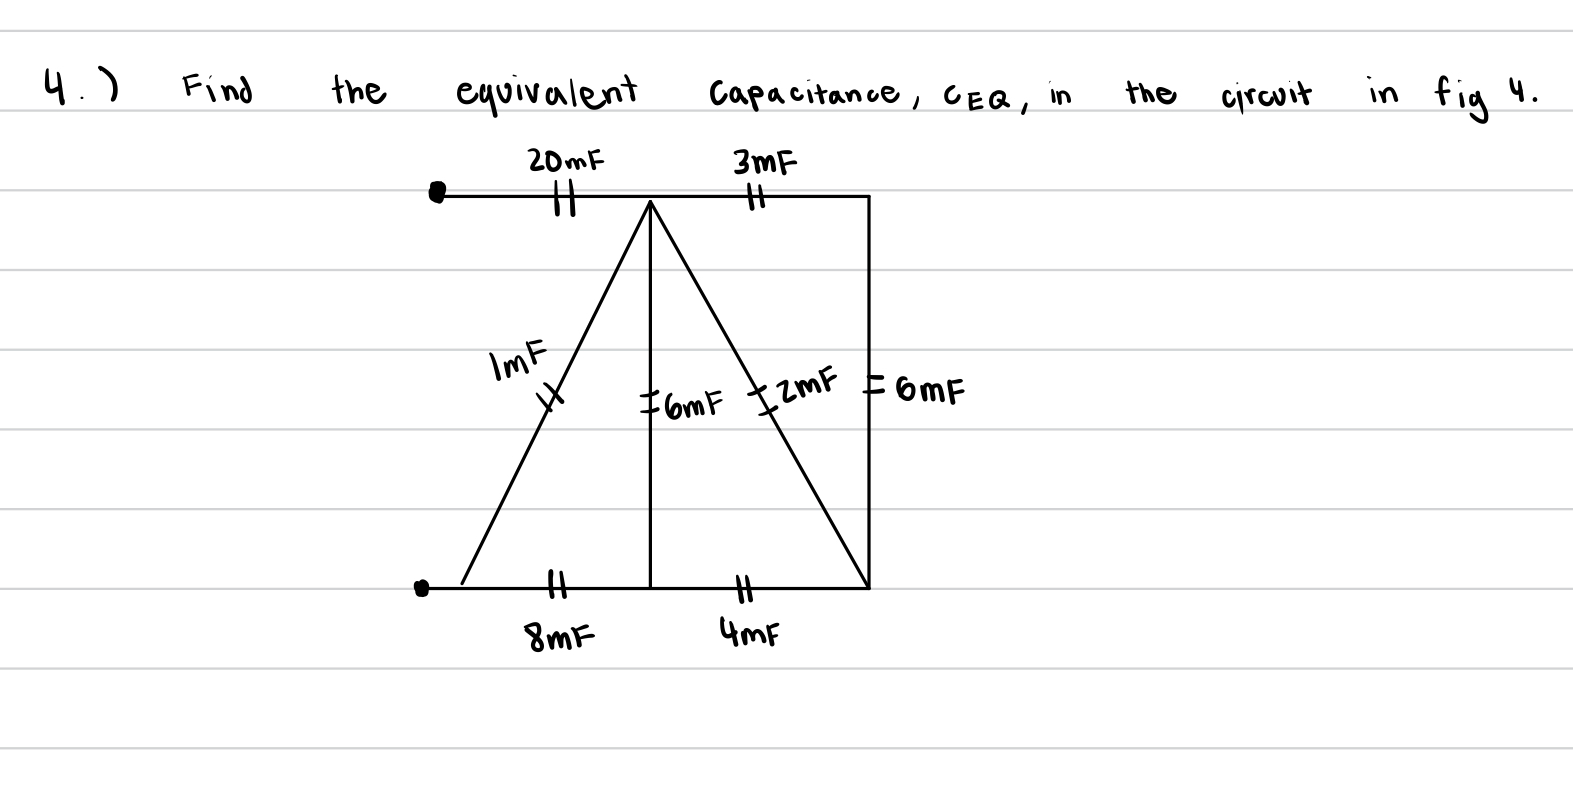 4.) Find the equivalent capacitance, CEQ, in the circuit in fig 4.
20mF 3mF
1mF 6mF 2mF 6mF
8mF 4mF